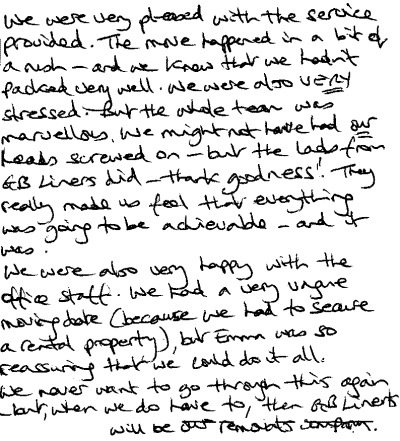 We were very pleased with the service
provided. The move happened in a bit of
a rush - and we knew that we hadn't
packed very well. We were also VERY
stressed. But the whole team was
marvellous. We might not have had our
heads screwed on - but the lads from
GB Liners did - thank goodness! They
really made us feel that everything
was going to be achievable - and it
was.
We were also very happy with the
office staff. We had a very vague
moving date (because we had to secure
a rental property), but Emma was so
reassuring that we could do it all.
We never want to go through this again
- but, when we do have to, then GB Liners
will be our removals company.